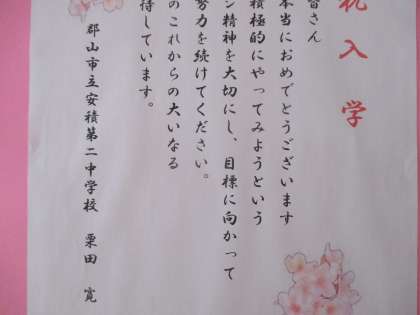 礼入学
皆さん
本当におめでとうございます
積極的にやってみようという
ン精神を大切にし、目標に向かって
努力を続けてください。
のこれからの大いなる
待しています。
郡山市立安積第二中学校 栗田 寛